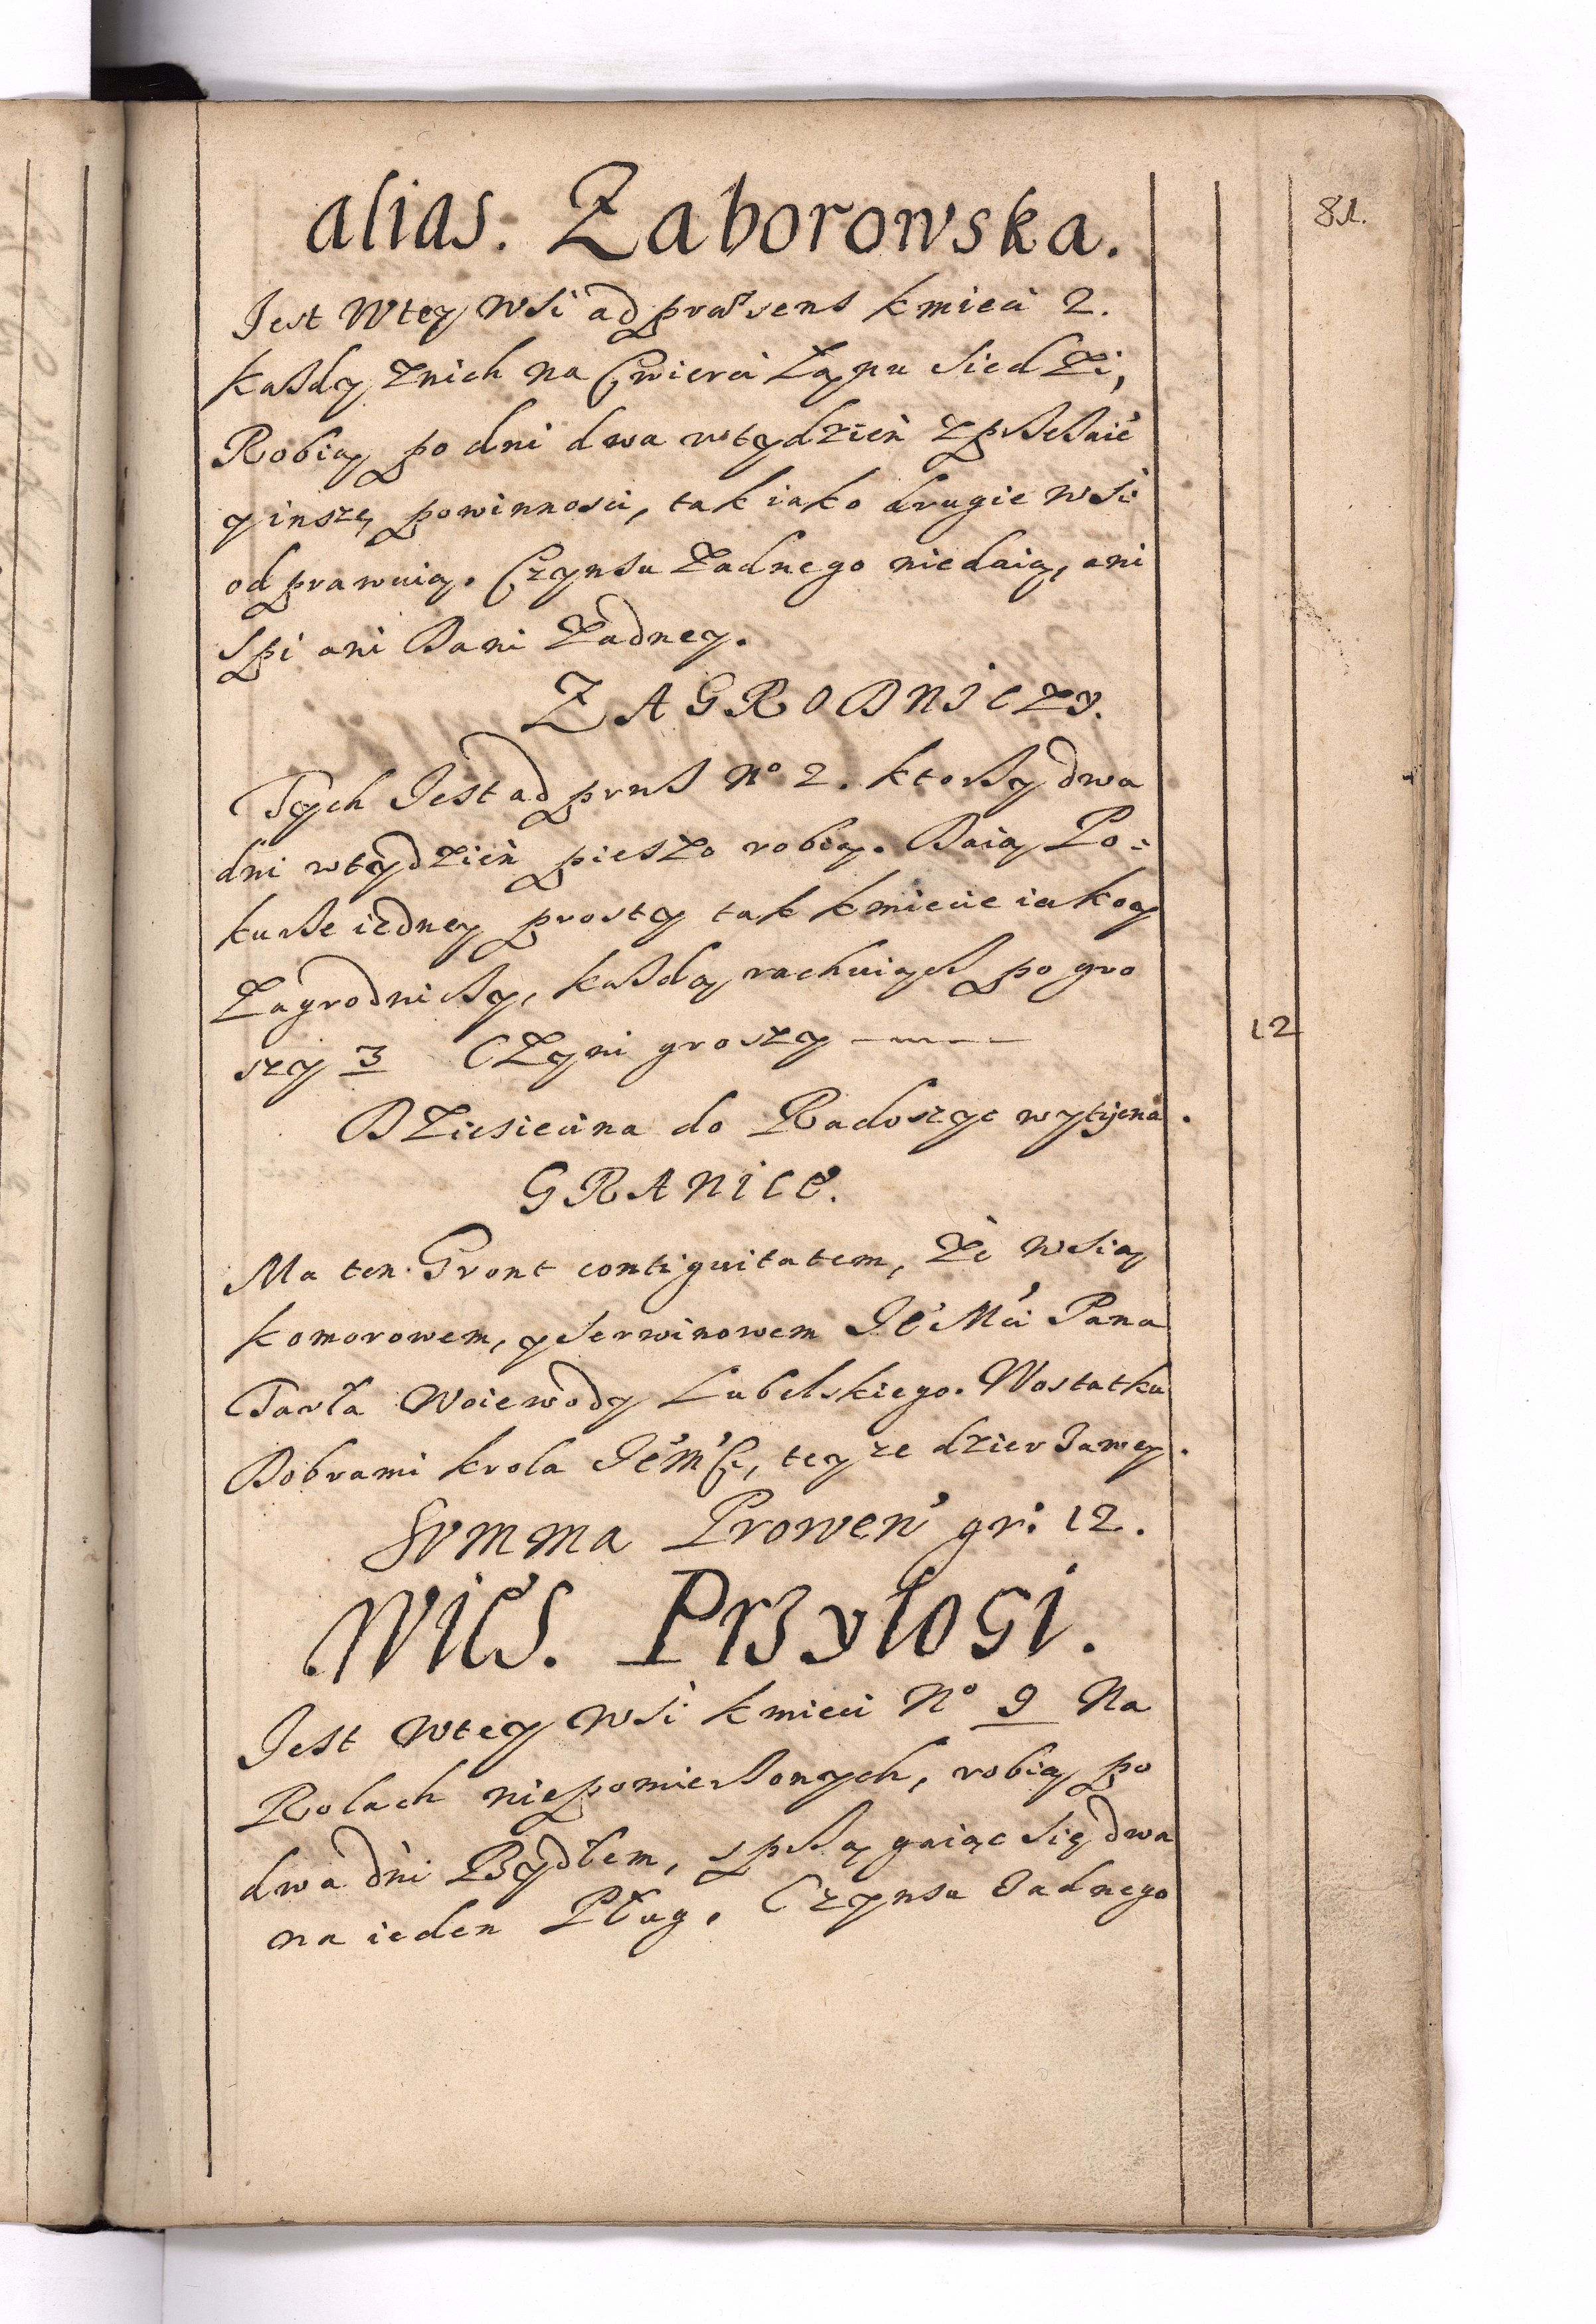 81.
alias. Zaborowska.
Jest wtey wsi ad præsens kmieci 2.
każdy znich na Cwierci Łanu siedzi,
Robią po dni dwa wtydzień
y inszę powinnosci, tak iako drugie wsi
odprawuią. Czynszu Żadnego niedaią, ani
Spi ani Dani Żadney.
ZAGRODNICZY.
Tych Jest ad prns No 2. ktorzy dwa
dni wtydzień pieszo robią. Daią Po-
kurze iedney prostey tak kmiecie iako y
Zagrodniczy, każdą rachuiącz po gro
szy 3 CZyni groszy 12
DZiesiecina do Radoszyc wytyczna.
GRANICE.
Ma ten Gront contiguitatem, ze wsią
komorowem, y Serwinowem Je Mci Pana
Tarła Woiewody Lubelskiego. Wostatku
Dobrami krola JeMſci, teyze dzierżawey.
Summa Prowen gr: 12.
WIES. Przyłogi.
Jest wtey wsi kmieci No 9 Na
Rolach niepomierzonych, robią po
dwa dni Bydłem, sprzągaiąc się dwa
na ieden Pług. Czynszu żadnego